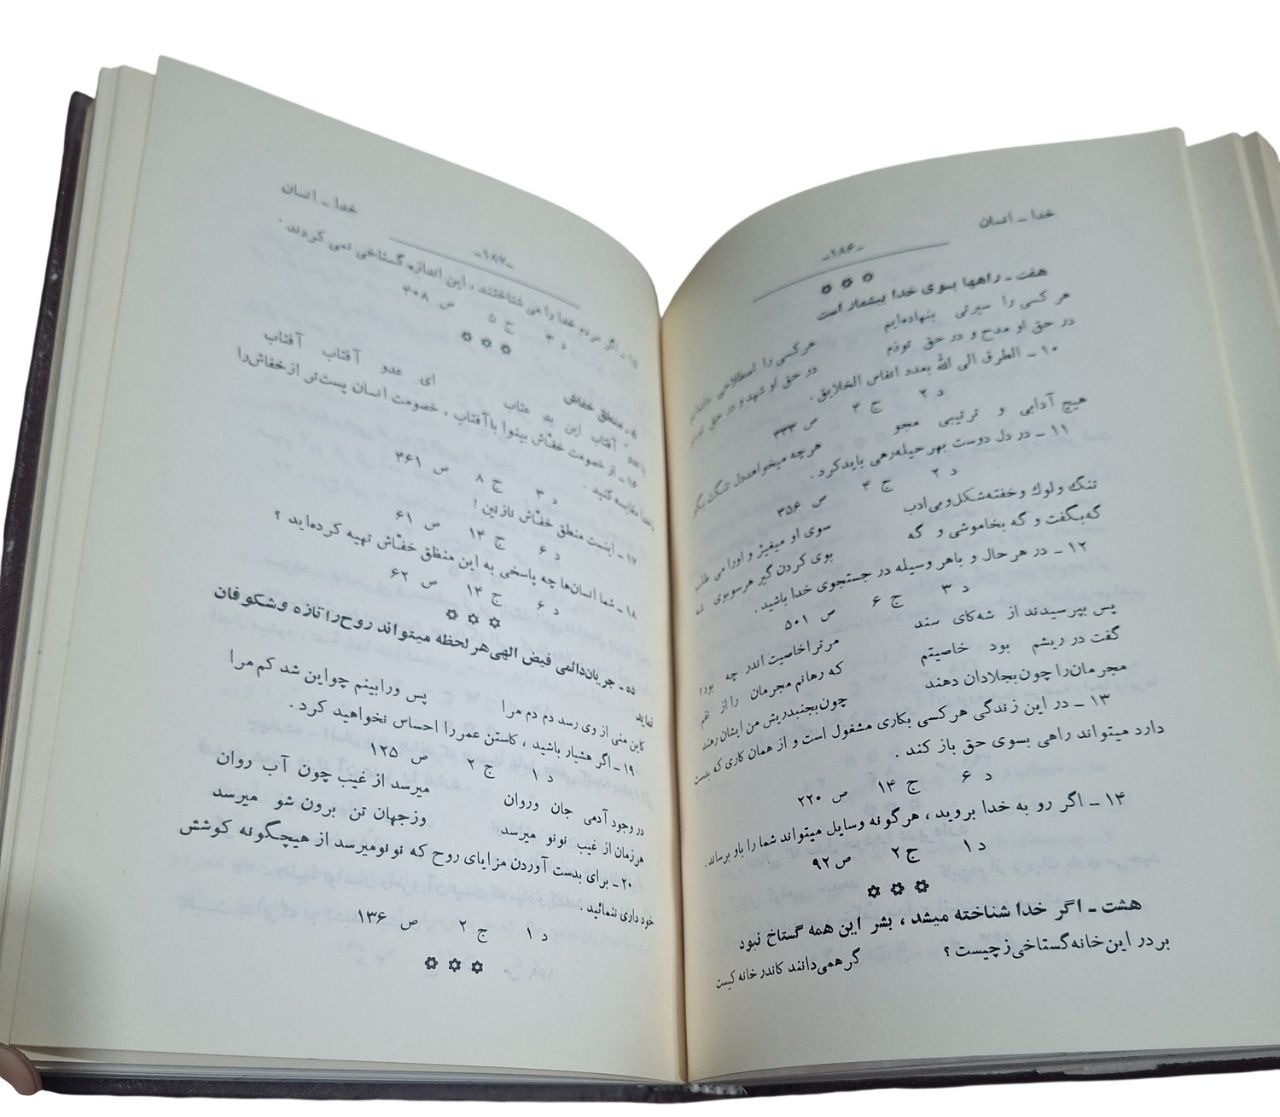 خدا ــ انسان
-۱۸۶-
هفت ــ راهها بسوی خدا بیشمار است
هر کسی را سیرتی بنهاده‌ایم هر کسی را اصطلاحی داده‌ایم
در حق او مدح و در حق تو ذم در حق او شهد و در حق تو سم
۱۰ ــ الطرق الی الله بعدد انفاس الخلایق .
د ۲ ج ۴ ص ۳۳۳
هیچ آدابی و ترتیبی مجو هرچه میخواهد دل تنگت بگو
۱۱ ــ در دل دوست بهر حیله رهی باید کرد .
د ۲ ج ۴ ص ۳۵۶
تنگ و لوک و خفته شکل و بی ادب سوی او میغیژ و اورا می طلب
گه بگفت و گه بخاموشی و گه بوی کردن گیر هرسو بوی شه
۱۲ ــ در هر حال و با هر وسیله در جستجوی خدا باشید .
د ۳ ج ۶ ص ۵۰۱
پس بپرسیدند از شه کای سند مر ترا خاصیت اندر چه بود
گفت در ریشم بود خاصیتم که رهانم مجرمان را از
مجرمان را چون بجلادان دهند چون بجنبد ریش من ایشان رهند
۱۳ ــ در این زندگی هر کسی بکاری مشغول است و از همان کاری که بدست
دارد میتواند راهی بسوی حق باز کند .
د ۶ ج ۱۴ ص ۲۲۰
۱۴ ــ اگر رو به خدا بروید ، هرگونه وسایل میتواند شما را باو برساند .
د ۱ ج ۲ ص ۹۲
هشت ــ اگر خدا شناخته میشد ، بشر این همه گستاخ نبود
گر همی دانند کاندر خانه کیست بر در این خانه گستاخی ز چیست ؟
خدا ــ انسان
-۱۸۷-
۱۵ ــ اگر مردم خدا را می شناختند ، این اندازه گستاخی نمی کردند .
د ۳ ج ۵ ص ۴۰۸
نه ــ منطق خفاش
ای عدو آفتاب آفتاب
۱۶ ــ از خصومت خفّاش بینوا با آفتاب ، خصومت انسان پست‌تر از خفاش را
مقایسه کنید .
د ۳ ج ۸ ص ۴۶۱
۱۷ ــ اینست منطق خفّاش نازنین !
د ۶ ج ۱۴ ص ۶۱
۱۸ ــ شما انسان‌ها چه پاسخی به این منطق خفّاش تهیه کرده‌اید ؟
د ۶ ج ۱۴ ص ۶۲
ده ــ جریان دائمی فیض الهی هر لحظه میتواند روح را تازه و شکوفان
نماید
کاین منی از وی رسد دم دم مرا پس ورا بینم چو این شد کم مرا
۱۹ ــ اگر هشیار باشید ، کاستن عمر را احساس نخواهید کرد .
د ۱ ج ۲ ص ۱۲۵
در وجود آدمی جان و روان میرسد از غیب چون آب روان
هر زمان از غیب نو نو میرسد وز جهان تن برون شو میرسد
۲۰ ــ برای بدست آوردن مزایای روح که نو نو میرسد از هیچگونه کوشش
خود داری ننمائید .
د ۱ ج ۲ ص ۱۳۶